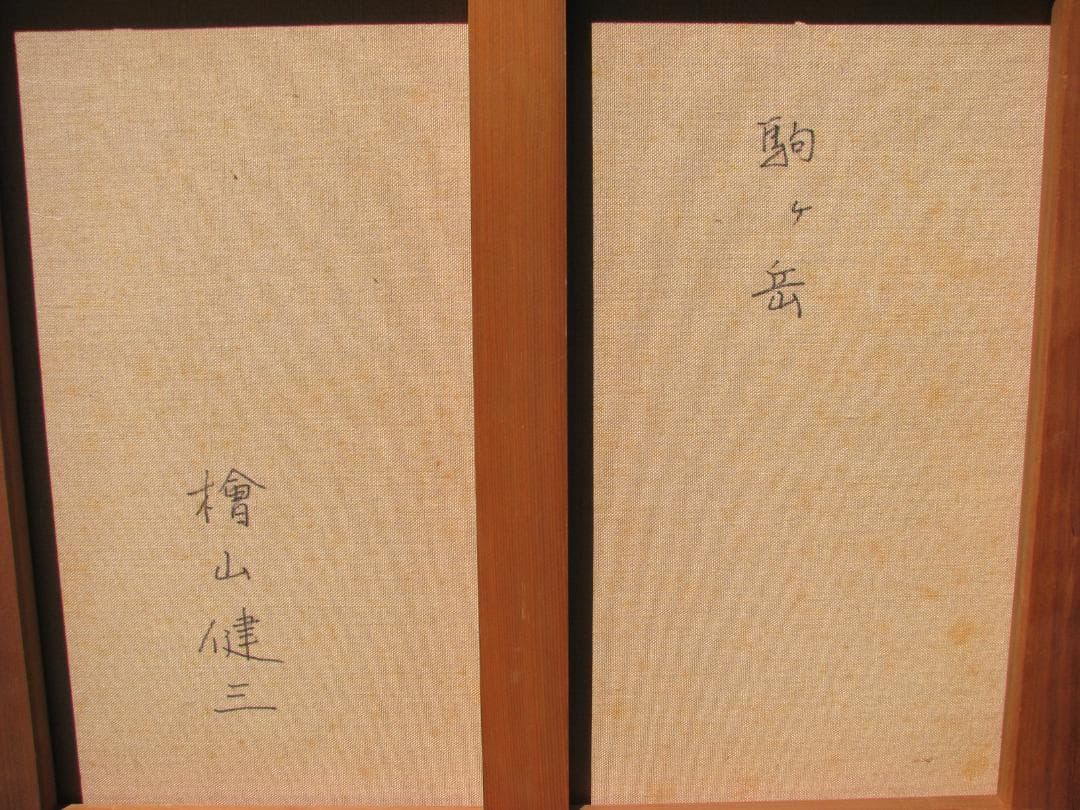 駒ヶ岳
檜山健三